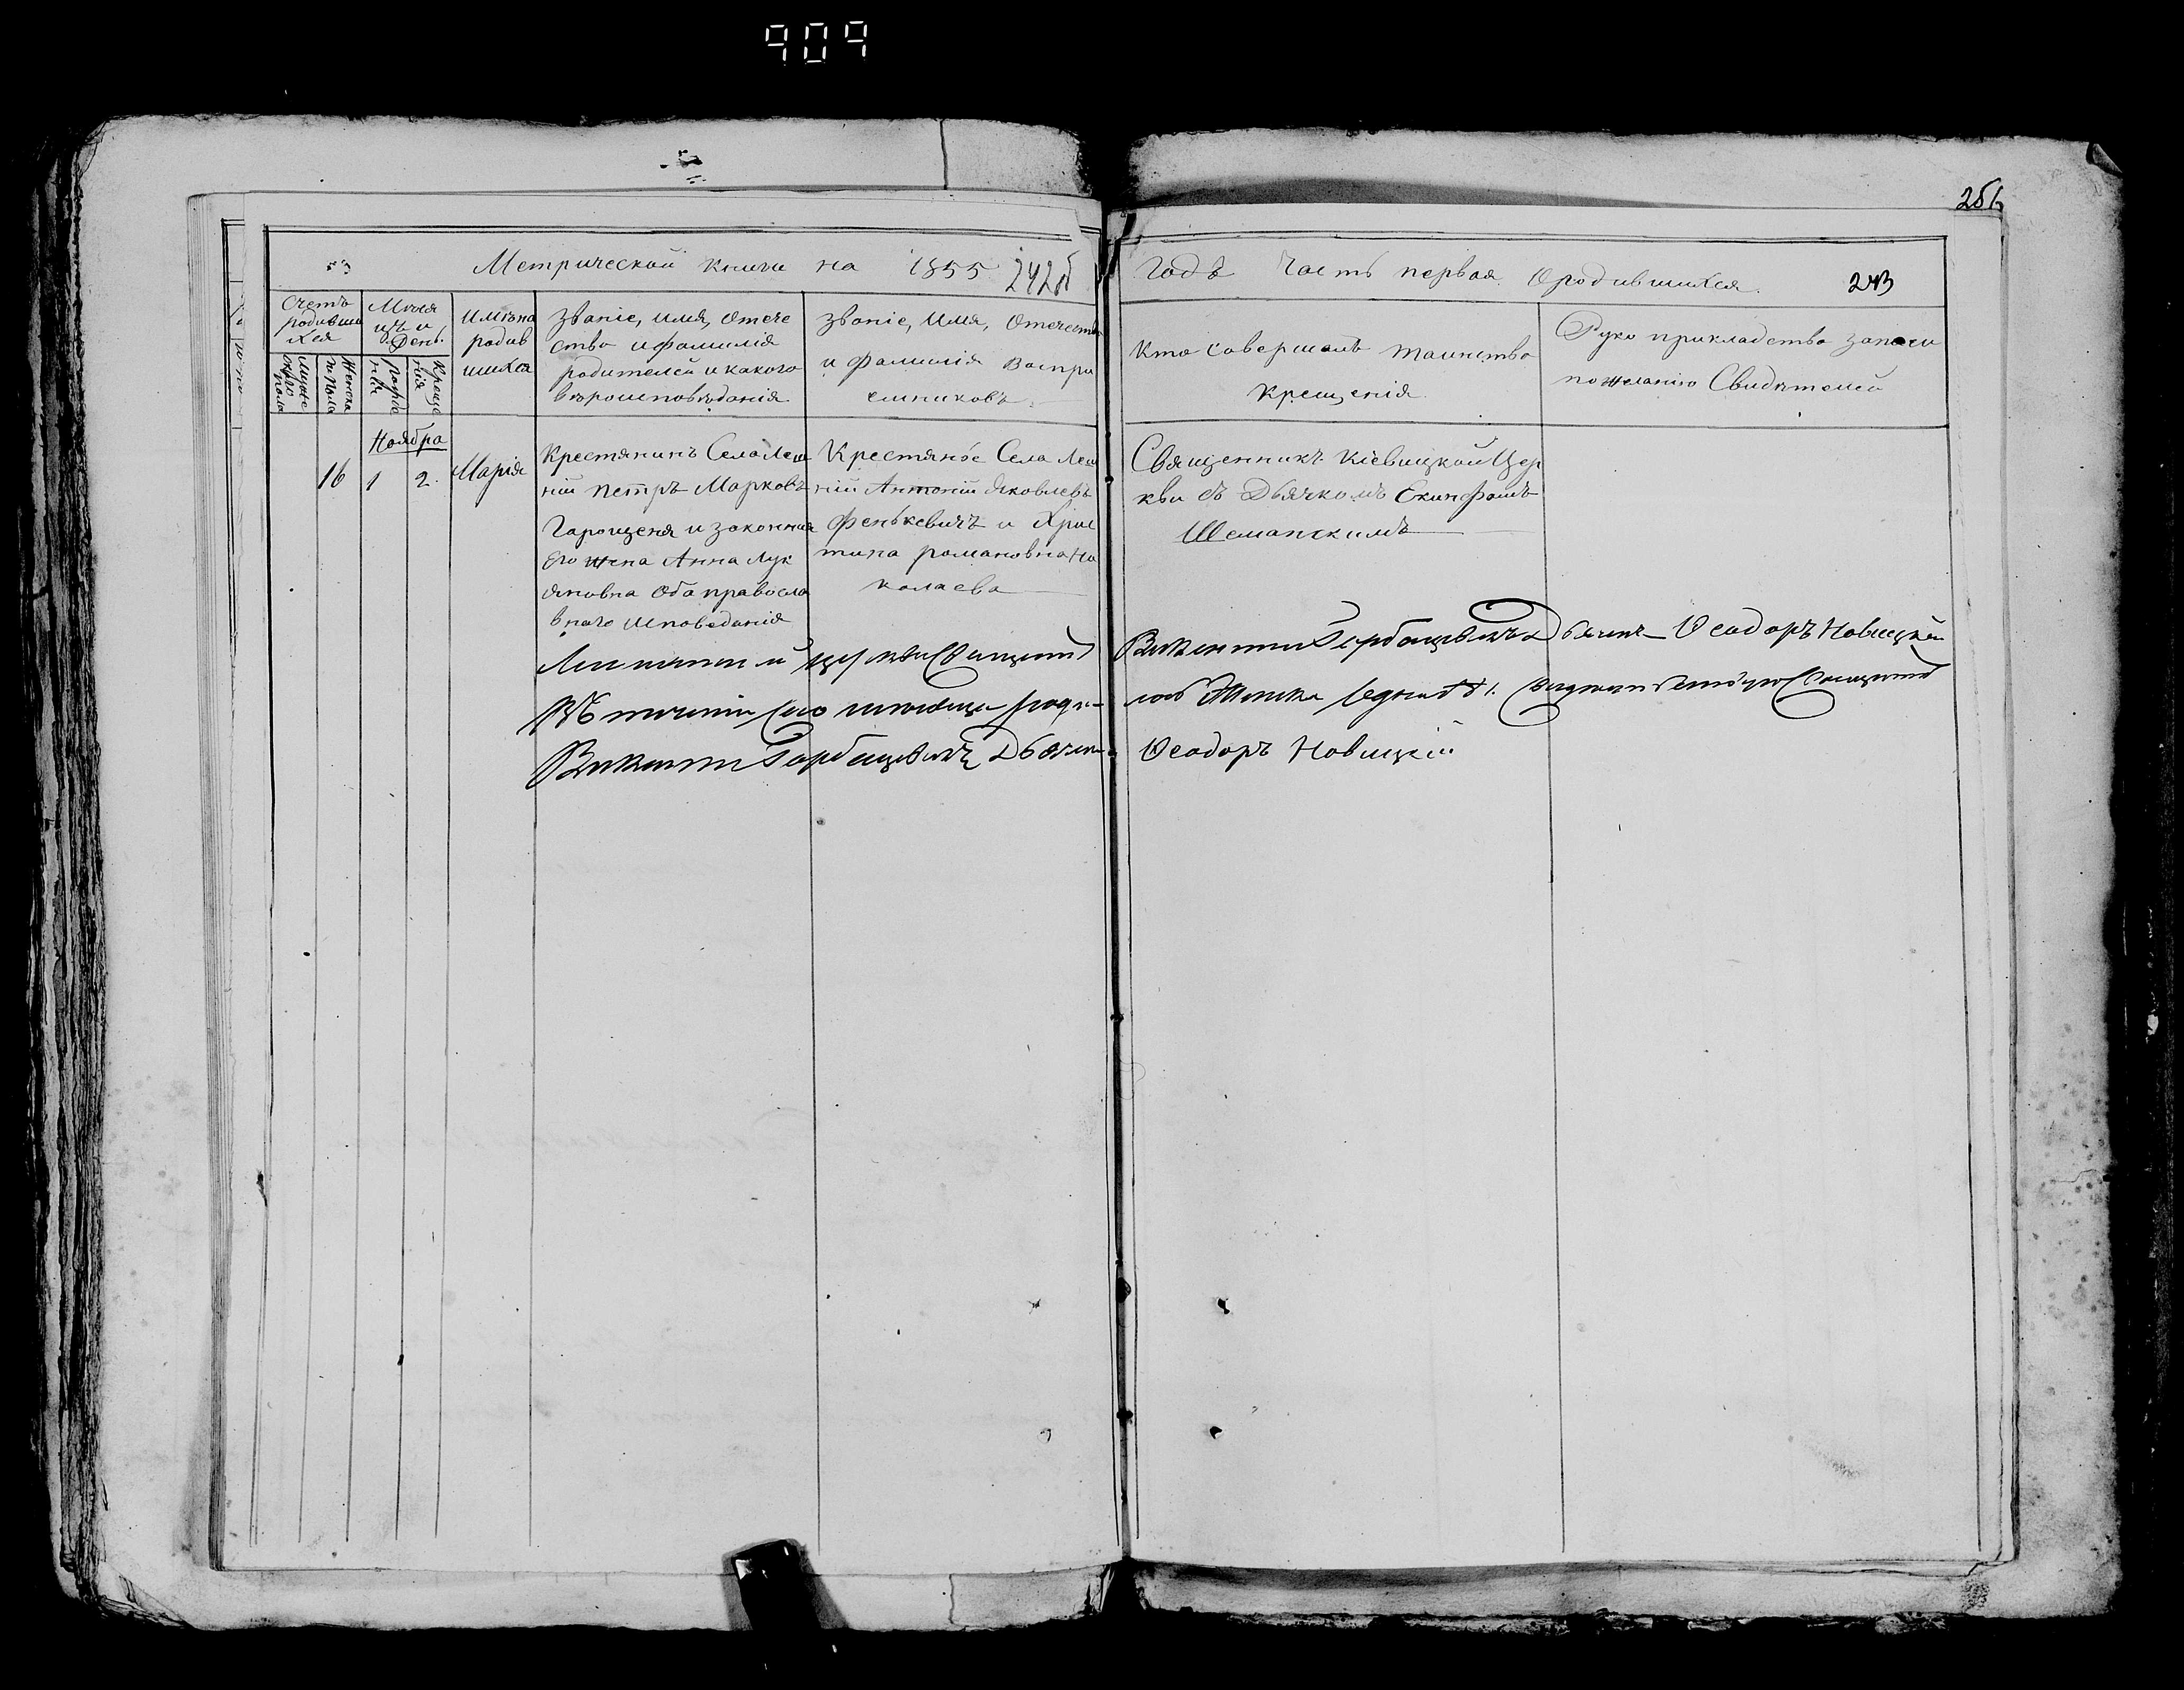 909
251
Метрической книги на 1855 242об
годъ часть первая Ородившихся 243
Счетъ родивши хся
Муже ского пола
Женска го Пола
Месяцъ и День.
Рожде нія
Креще нія
Имена родив шихся
Званіе, имя, Отече
ство и фамилія
родителей и какого
вѣроисповѣданія
Званіе, Имя, Отечество
и Фамилія Воспри
емниковъ
Кто Совершалъ таинство
Крещенія
Руко прикладство записи
по желанію Свидѣтелей
Ноября
16 1 2. Марія
Крестянинъ Села Леш
ній Петръ Марковъ
Гарощеня и законная
его жена Анна Лук
яновна Оба правосла
внаго исповеданія
Крестяне Села Леш
ній Антоній Яковлевъ
Фенькевичъ и Хрис
тина романовна Но
колаева
Священникъ Кіевицкой Цер
кви съ Дьячкомъ Екинфомъ
Шеманскимъ
Викентій Горбацевичъ Дьячекъ Ѳеодоръ Новицкій
Викентій Горбацевичъ Дьячекъ Ѳеодоръ Новицкій